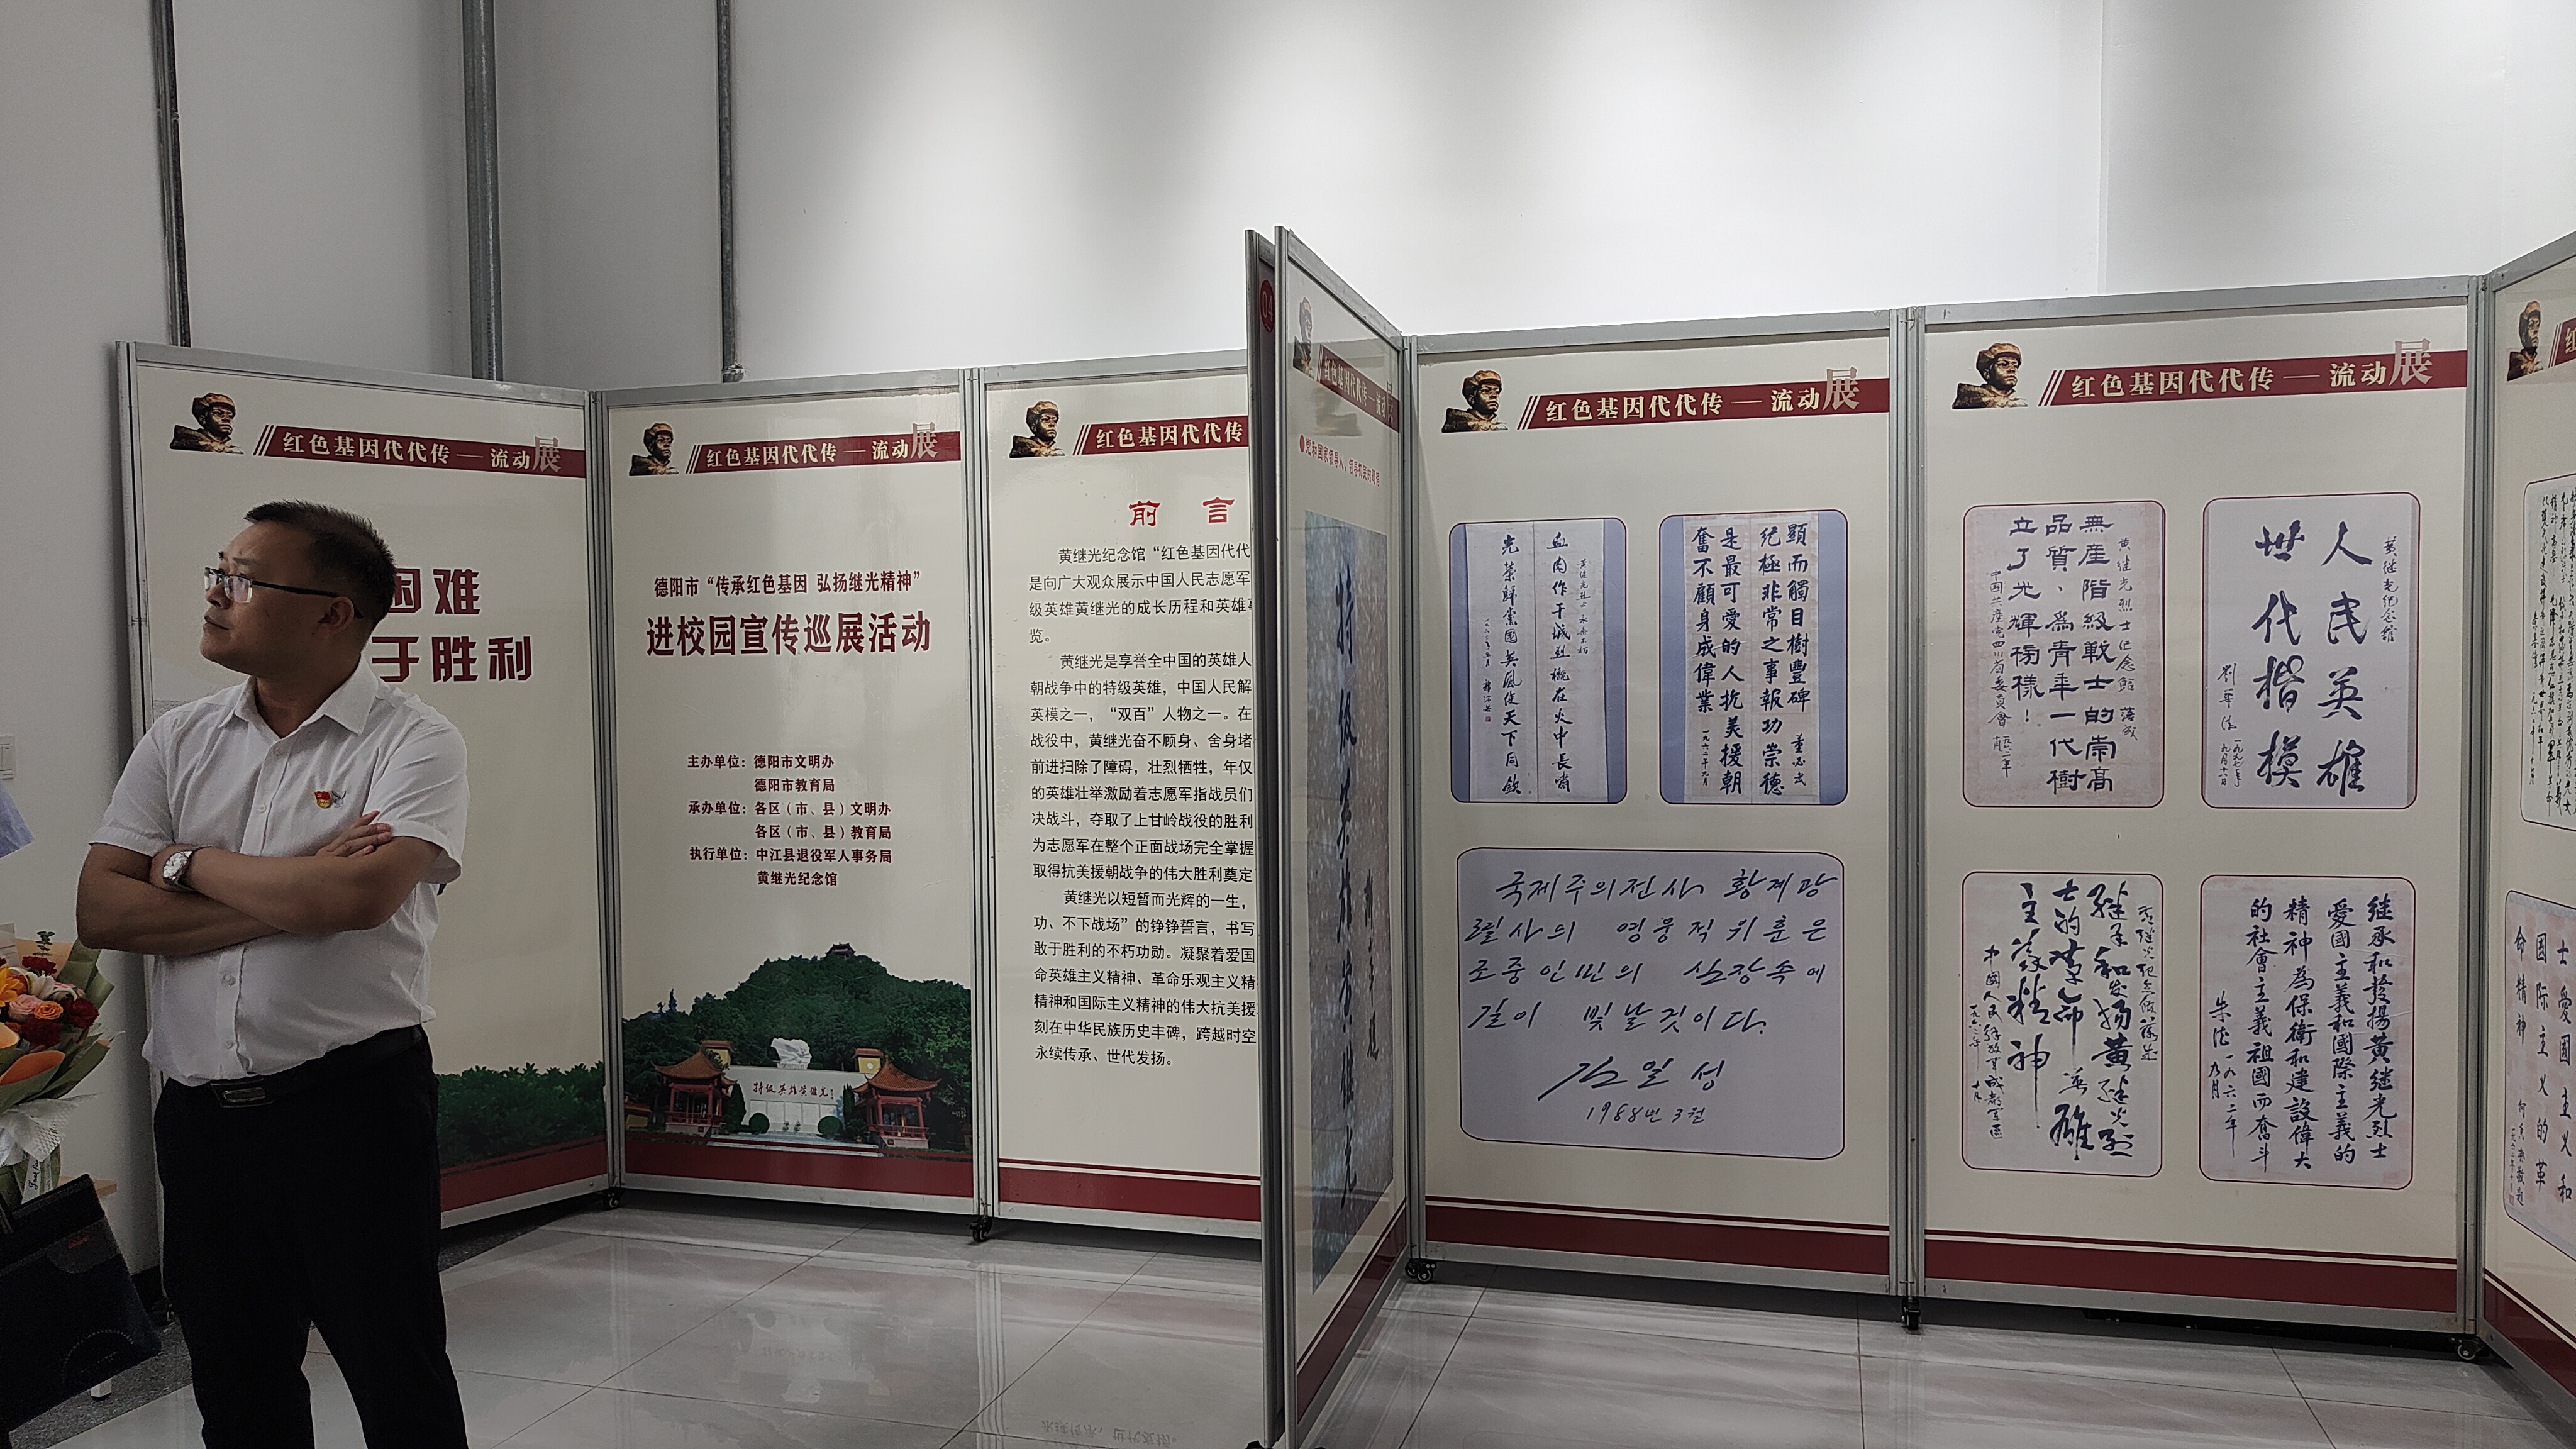 红色基因代代传 — 流动展
困难
于胜利
红色基因代代传 — 流动展
德阳市“传承红色基因 弘扬继光精神”
进校园宣传巡展活动
主办单位：德阳市文明办
德阳市教育局
承办单位：各区（市、县）文明办
各区（市、县）教育局
执行单位：中江县退役军人事务局
黄继光纪念馆
特级英雄黄继光
红色基因代代传
前 言
黄继光纪念馆“红色基因代代
是向广大观众展示中国人民志愿军
级英雄黄继光的成长历程和英雄
览。
黄继光是享誉全中国的英雄人
朝战争中的特级英雄，中国人民解
英模之一，“双百”人物之一。在
战役中，黄继光奋不顾身、舍身堵
前进扫除了障碍，壮烈牺牲，年仅
的英雄壮举激励着志愿军指战员们
决战斗，夺取了上甘岭战役的胜利
为志愿军在整个正面战场完全掌握
取得抗美援朝战争的伟大胜利奠定
黄继光以短暂而光辉的一生，
功、不下战场”的铮铮誓言，书写
敢于胜利的不朽功勋。凝聚着爱国
命英雄主义精神、革命乐观主义精
精神和国际主义精神的伟大抗美援
刻在中华民族历史丰碑，跨越时空
永续传承、世代发扬。
04
红色基因代代传 — 流动展
党和国家领导人、领导机关的题词
特级英雄黄继光
红色基因代代传 — 流动展
血肉作干城烈概在火中長嘯
光榮歸黨國英風使天下同欽
顯而觸目樹豐碑
紀極非常之事報功崇德
是最可愛的人抗美援朝
奮不顧身成偉業
董必武
一九六二年九月
국제주의전사 황계광
렬사의 영웅적위훈은
조중인민의 심장속에
길이 빛날것이다.
김일성
1988년 3월
红色基因代代传 — 流动展
黄继光烈士纪念館落成
無産階級戰士的崇高
品質，為青年一代樹
立了光輝榜樣！
中国共産党四川省委員會
一九六二年
黄继光纪念館
人民英雄
世代楷模
劉華清
一九九七年
九月十六日
继承和发扬黄继光烈
士的革命英雄
主義精神
中國人民解放軍成都軍區
一九六二年十月
继承和發揚黄继光烈士
愛國主義和國際主義的
精神為保衛和建設偉大
的社會主義祖國而奮斗
朱德一九六二年
九月
士愛國主义和
国际主义的革
命精神